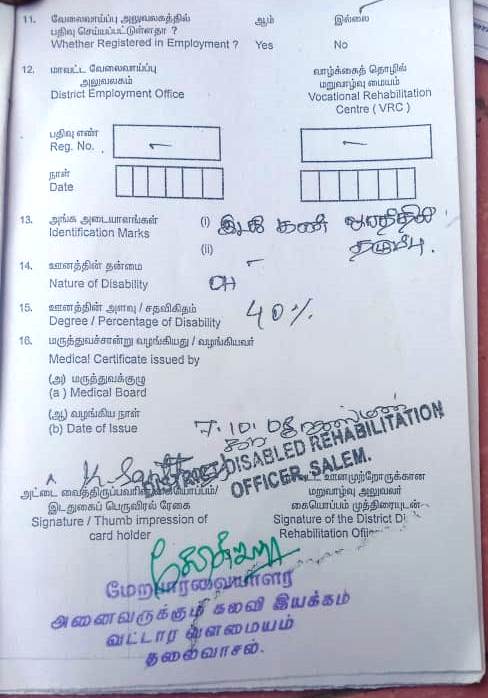 11. வேலைவாய்ப்பு அலுவலகத்தில் ஆம் இல்லை
பதிவு செய்யப்பட்டுள்ளதா ?
Whether Registered in Employment ? Yes No
12. மாவட்ட வேலைவாய்ப்பு வாழ்க்கைத் தொழில்
அலுவலகம் மறுவாழ்வு மையம்
District Employment Office Vocational Rehabilitation
Centre ( VRC )
பதிவு எண்
Reg. No.
நாள்
Date
13. அங்க அடையாளங்கள் (i) இடக் கண்
Identification Marks தழும்பு.
(ii)
14. ஊனத்தின் தன்மை
Nature of Disability OH
15. ஊனத்தின் அளவு / சதவிகிதம்
Degree / Percentage of Disability 40%
16. மருத்துவச்சான்று வழங்கியது / வழங்கியவர்
Medical Certificate issued by
(அ) மருத்துவக்குழு
(a ) Medical Board
(ஆ) வழங்கிய நாள்
(b) Date of Issue 7.10.08
DISTRICT DISABLED REHABILITATION
OFFICER, SALEM.
அட்டை வைத்திருப்பவரின் கையொப்பம்/ ஊனமுற்றோருக்கான
இடதுகைப் பெருவிரல் ரேகை மறுவாழ்வு அலுவலர்
கையொப்பம் முத்திரையுடன்
Signature / Thumb impression of Signature of the District Di
card holder Rehabilitation
மேற்பார்வையாளர்
அனைவருக்கும் கல்வி இயக்கம்
வட்டார வளமையம்
தலைவாசல்.